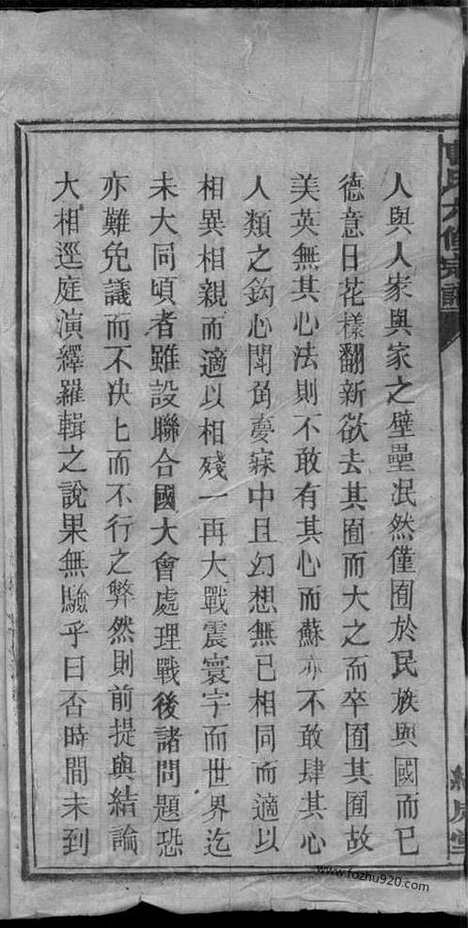 氏六修宗譜
人與人家與家之壁壘泯然僅囿於民族與國而已
德意日花樣翻新欲去其囿而大之而卒囿其囿故
美英無其心法則不敢有其心而蘇亦不敢肆其心
人類之鈎心鬪角夢寐中且幻想無已相同而適以
相異相親而適以相殘一再大戰震寰宇而世界迄
未大同頃者雖設聯合國大會處理戰後諸問題恐
亦難免議而不决匕而不行之弊然則前提與結論
大相逕庭演繹羅輯之說果無驗乎曰否時間未到
www.fozhu920.com